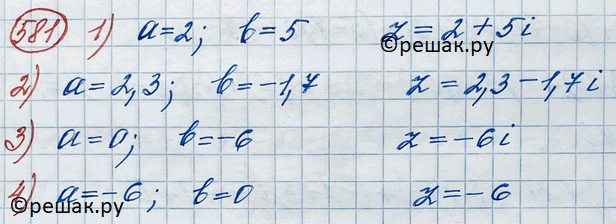 581 1) a=2; b=5 z=2+5i
©решак.ру
2) a=2,3; b=-1,7 z=2,3-1,7i
3) a=0; b=-6 z=-6i
4) a=-6; b=0 z=-6
©решак.ру